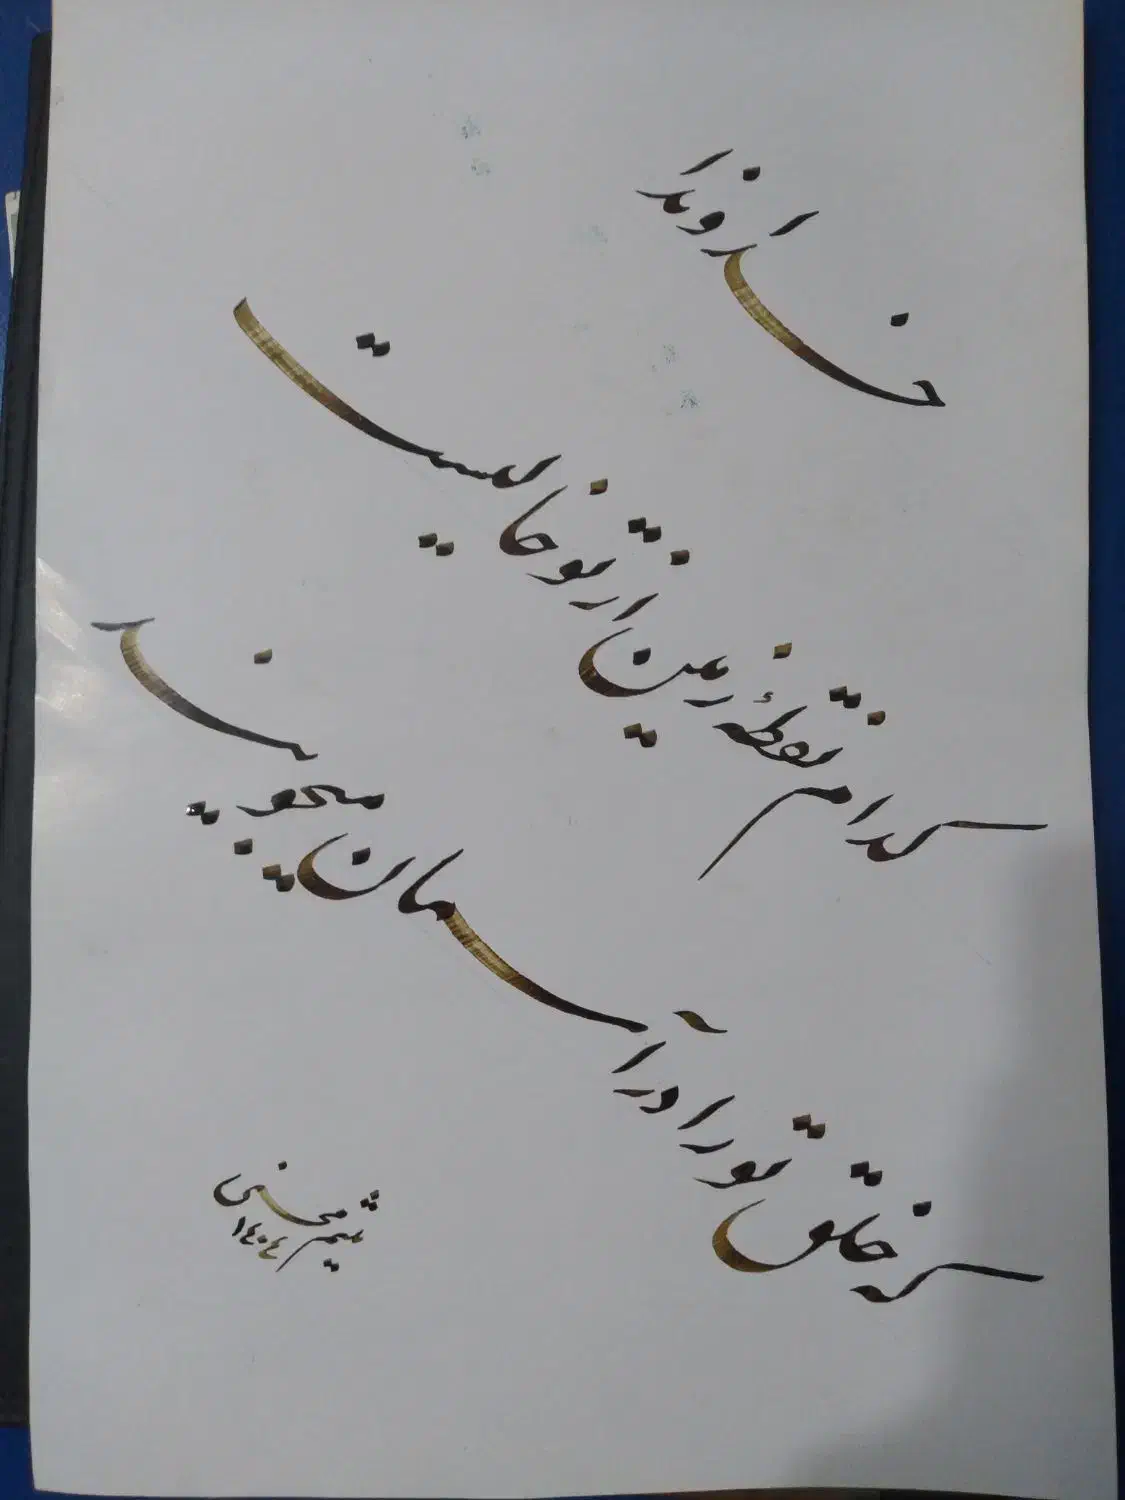 خداوندا
کدام نقطهٔ زمین از تو خالیست
که خلق تو را در آسمان میجویند
شمیم محسنی
۱۴۰۴